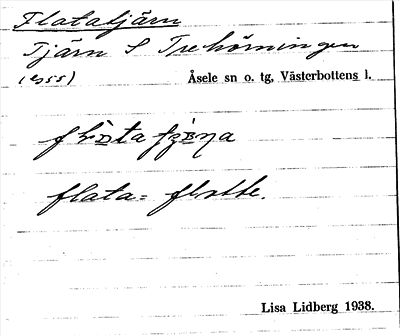 Flatatjärn
Tjärn S Trehörningen
(455) Åsele sn o. tg, Västerbottens l.
flata = flotte.
Lisa Lidberg 1938.